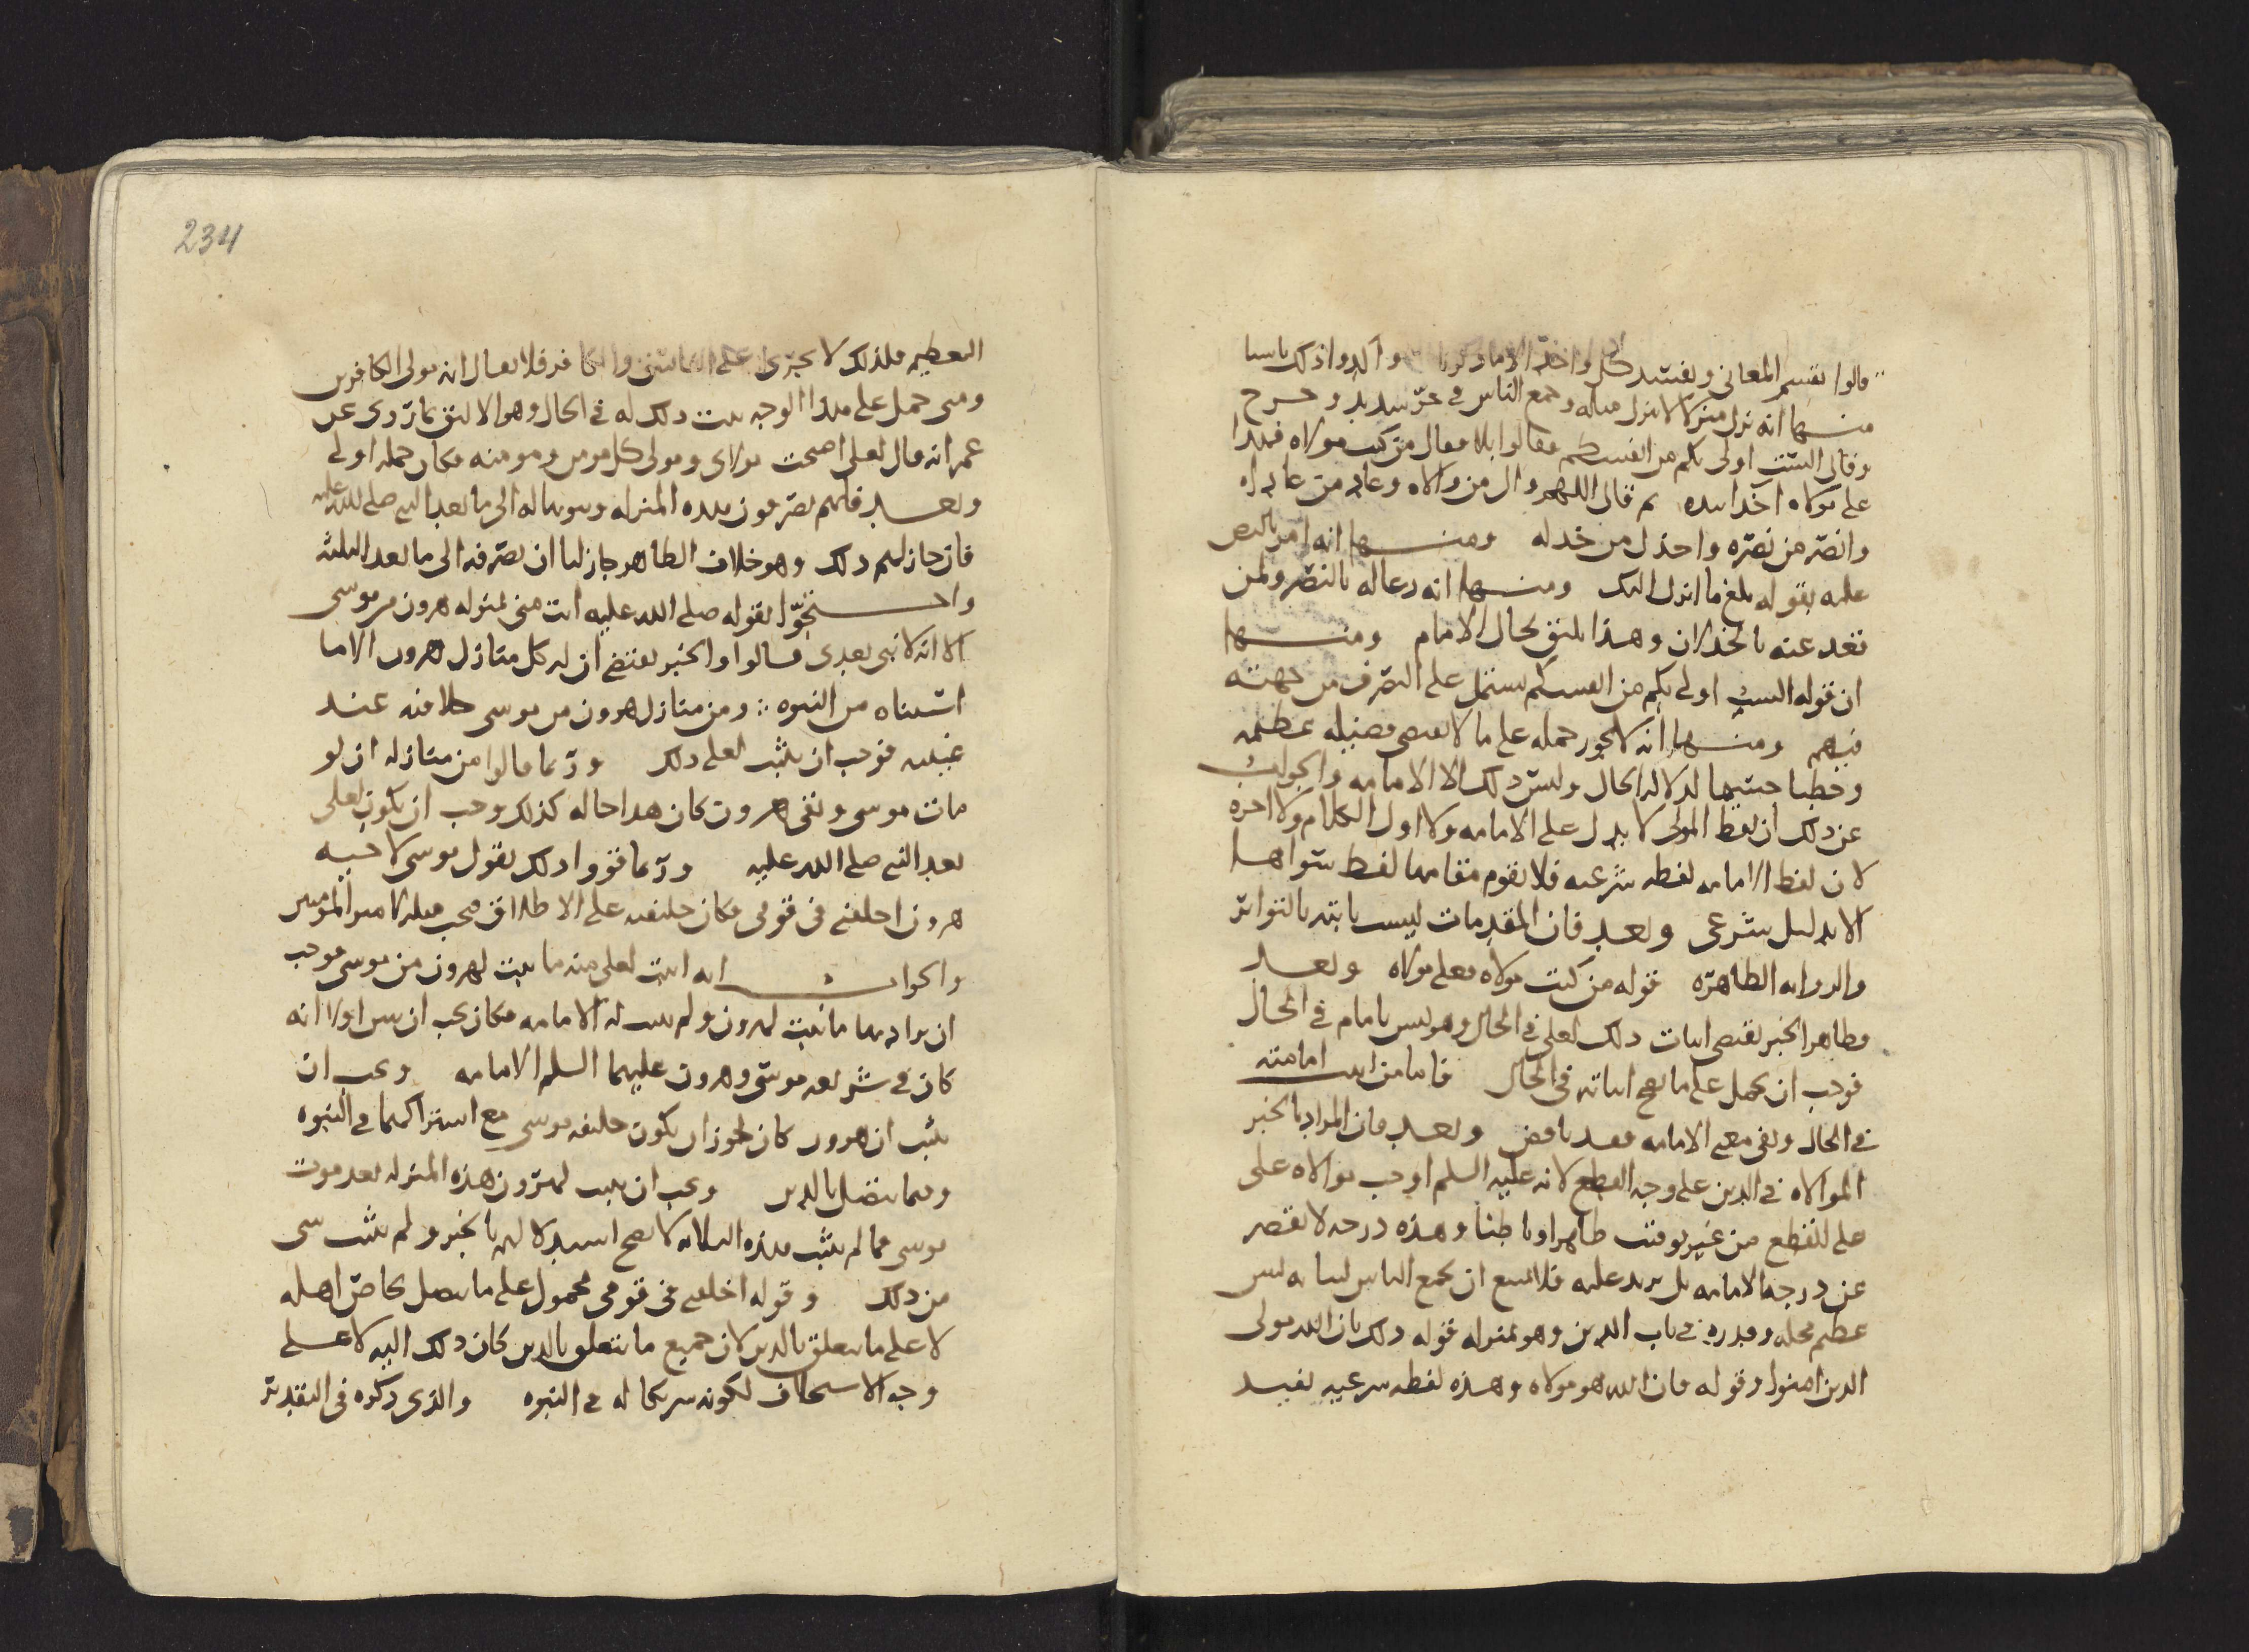 قالوا نقسم المعاني ونفسد كل واحد الا ما ذكرنا واكدوا ذلك باشيا
منها انه نزل منزلا لا ينزل مثله وجمع الناس في حر شديد وحرج
وقال الست اولى بكم من انفسكم فقالوا بلا فقال من كنت مولاه فهذا
علي مولاه اخذا بيده ثم قال اللهم وال من والاه وعاد من عاداه
وانصر من نصره واخذل من خذله ومنها انه امر بالنص
عليه بقوله بلغ ما انزل اليك ومنها انه دعا له بالنصر ولمن
قعد عنه بالخذلان وهذا يليق بحال الامام ومنها
ان قوله الست اولى بكم من انفسكم يشتمل على التصرف من جهته
فيهم ومنها انه لا يجوز حمله على ما لا يقتضي فضيله عظيمه
وخطبا جسيما لدلاله الحال وليس ذلك الا الامامه والجواب
عن ذلك ان لفظ المولى لا يدل على الامامه ولا اول الكلام ولا اخره
لان لفظ الامامه لفظه شرعيه فلا يقوم مقامها لفظ سواها
الا بدليل شرعي وبعد فان المقدمات ليست ثابته بالتواتر
والروايه الظاهره قوله من كنت مولاه فعلي مولاه وبعد
فظاهر الخبر يقتضي اثبات ذلك لعلي في الحال وهو ليس بامام في الحال
فوجب ان يحمل على ما يصح اثباته في الحال فاما من اثبت امامته
في الحال ونفى معنى الامامه فقد ناقض وبعد فان المراد بالخبر
الموالاه في الدين على وجه القطع لانه عليه السلم اوجب موالاه علي
على القطع من غير توقيت ظاهرا وباطنا وهذه درجه لا تقصر
عن درجه الامامه بل يزيد عليه فلا يمتنع ان يجمع الناس لبيانه ليس
عظم محله وقدره في باب الدين وهو بمنزله قوله ذلك بان الله مولى
الذين امنوا وقوله فان الله هو مولاه وهذه لفظه شرعيه تفيد
234
التعظيم فلذلك لا يجرى على الفاسق والكافر فلا يقال انه مولى الكافرين
ومتى حمل على هذا الوجه يثبت ذلك له في الحال وهو الاليق بما روى عن
عمر انه قال لعلي اصبحت مولاى ومولى كل مومن ومومنه فكان حمله اولى
وبعد فانهم يصرفون هذه المنزله وثبوتها له الى ما بعد النبي صلى الله عليه
فان جاز لهم ذلك وهو خلاف الظاهر جاز لنا ان نصرفه الى ما بعد الثلثه
واحتجوا بقوله صلى الله عليه انت مني بمنزله هرون من موسى
الا انه لا نبي بعدى قالوا والخبر يقتضي ان له كل منازل هرون الا ما
استثناه من النبوه ومن منازل هرون من موسى خلافته عند
غيبته فوجب ان يثبت لعلي ذلك وربما قالوا من منازله ان لو
مات موسى وبقى هرون كان هذا حاله كذلك وجب ان يكون لعلي
بعد النبي صلى الله عليه وربما قووا ذلك بقول موسى لاخيه
هرون اخلفني في قومي فكان خليفته على الاطلاق فيجب مثله لامير المومنين
والجواب انه اثبت لعلي منه ما يثبت لهرون من موسى فوجب
ان يراد بها ما ثبت لهرون ولم يثبت له الامامه فكان يجب ان يبين اولا انه
كان في شريعه موسى وهرون عليهما السلم الامامه ويجب ان
يثبت ان هرون كان يجوز ان يكون خليفه موسى مع اشتراكهما في النبوه
وفيما يتصل بالدين ويجب ان يثبت لهرون هذه المنزله بعد موت
موسى فما لم يثبت هذه الثلاثه لا يصح استدلالهم بالخبر ولم يثبت شى
من ذلك وقوله اخلفني في قومي محمول على ما يتصل بخاص اهله
لا على ما يتعلق بالدين لان جميع ما يتعلق بالدين كان ذلك اليه لا على
وجه الاستخلاف لكونه شريكا له في النبوه والذى ذكره في التقدير